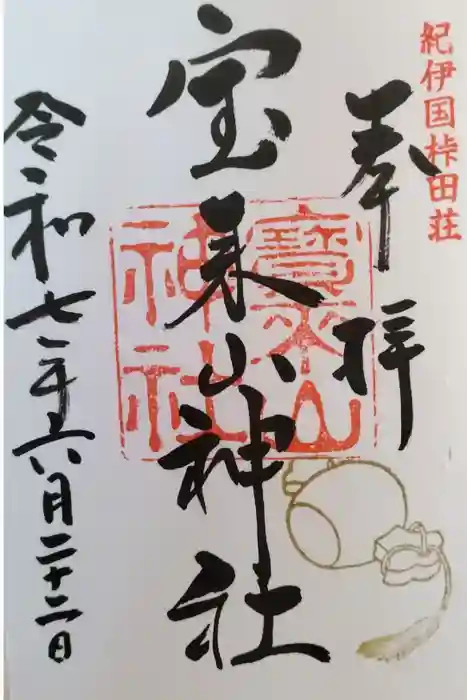 紀伊国桛田荘
奉拝
宝来山神社
寳来山神社
令和七年六月二十二日